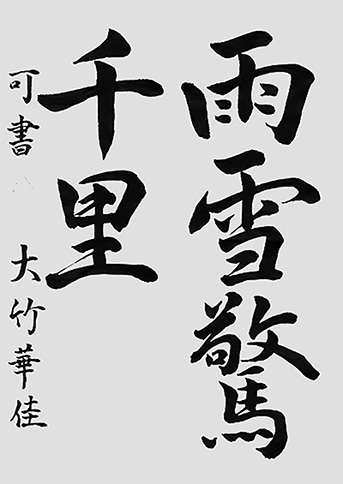 雨雪驚
千里
可書 大竹華佳